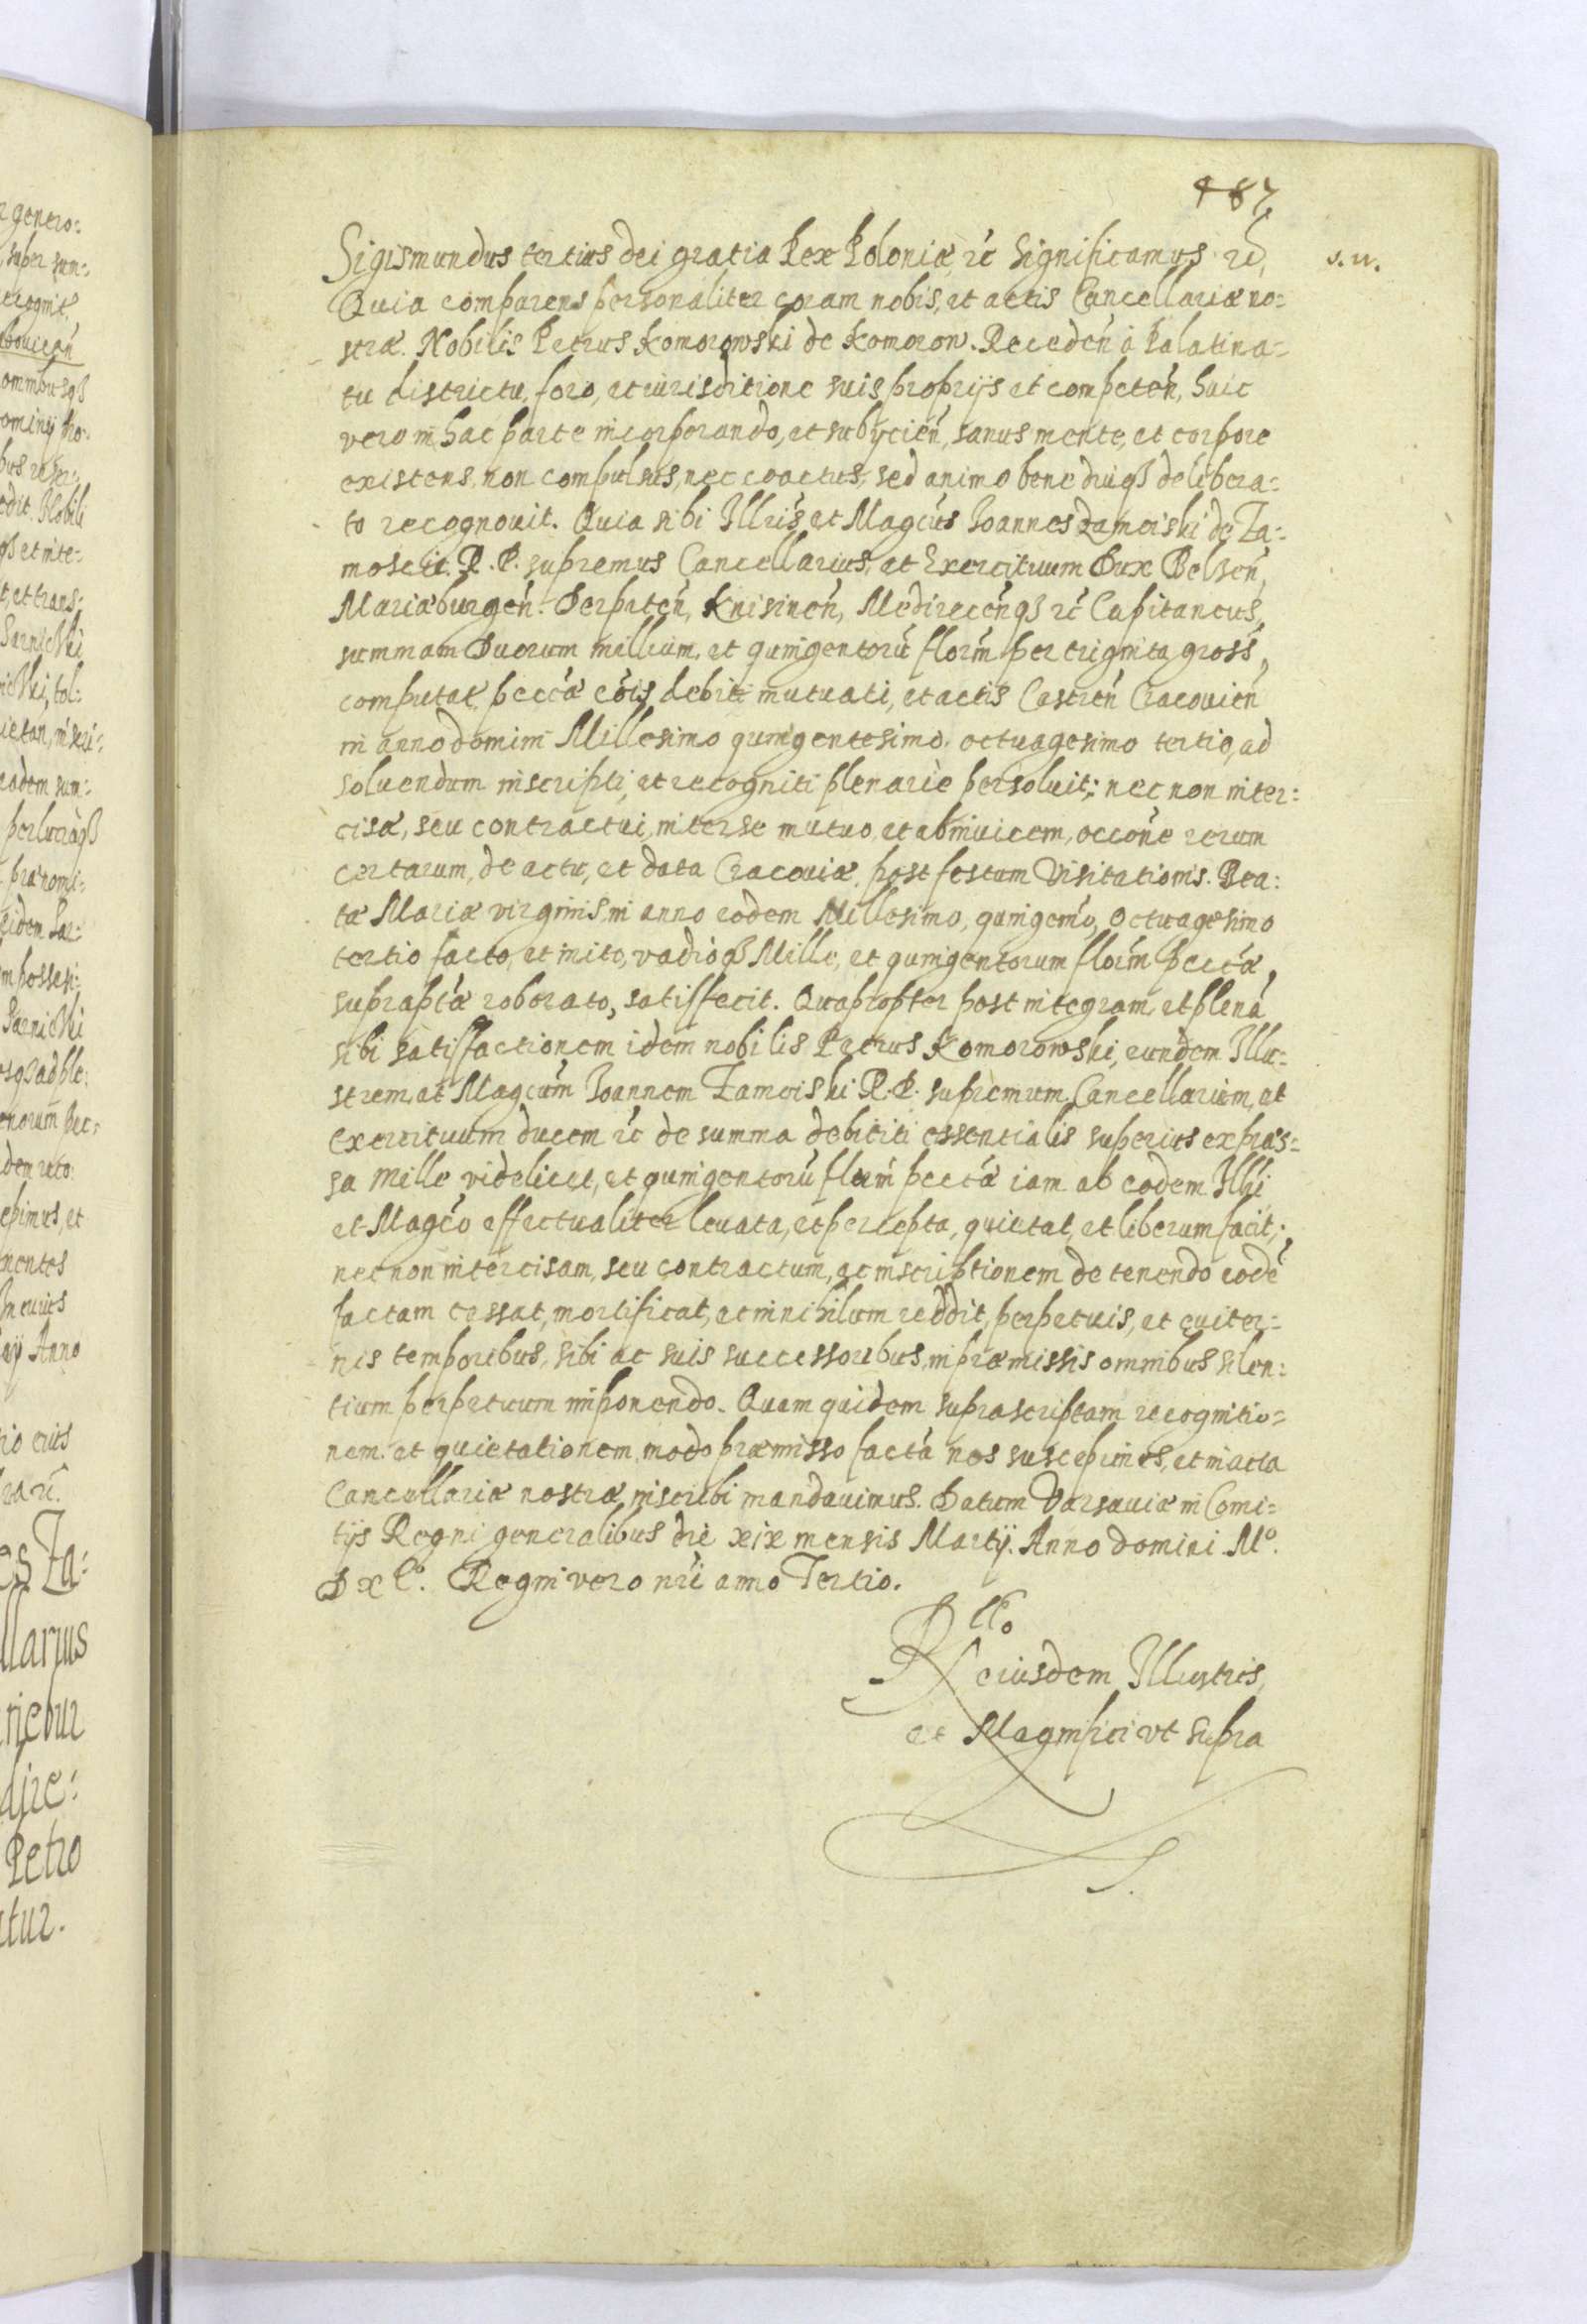 487
Sigismundus tertius dei gratia Rex Poloniæ, ꝛc̃ Significamus ꝛc̃, s. n.
Quia comparens personaliter coram nobis, et actis Cancellariæ no=
stræ. Nobilis Petrus Komorowski de Komorow. Receden̄ à Palatina=
tu districtu, foro, et iurisditione suis proprijs et competen̄, huic
vero in hac parte incorporando, et subijcien̄, sanus mente, et corpore
existens, non compulsus, nec coactus, sed animo bene diuqз delibera=
to recognouit. Quia sibi Illris̄ et Magcūs Ioannes Zamoiski de Za=
moscie. R. P. supremus Cancellarius, et Exercituum Dux Belsen̄,
Mariæburgen̄. Derpaten̄, Knisinen̄, Medirecen̄qз ꝛc̃ Capitaneus,
summam Duorum millium, et quingentorū florm̄ per triginta gross̄,
computat, peccā eōis debiti mutuati, et actis Castren̄ Cracouien̄
in anno domini Millesimo quingentesimo. octuagesimo tertio, ad
soluendum inscripti, et recogniti plenariè persoluit; nec non inter=
cisæ, seu contractui, inter se mutuo, et abinuicem, occōne rerum
certarum, de actu, et data Cracouiæ, post festum Visitationis. Bea=
tæ Mariæ virginis, in anno eodem Millesimo, quingemō, Octuagesimo
tertio facto, et inito, vadioqз Mille, et quingentorum florm̄ peccā,
supraptā roborato, satisfecit. Quapropter post integram, et plenā
sibi satisfactionem idem nobilis Petrus Komorowski, eundem Illu=
strem, et Magcūm Ioannem Zamoiski R. P. supremum Cancellarium, et
exercituum ducem ꝛc̃ de summa debititi essentialis superius expræs=
sa Mille videlicet, et quingentorū florm̄ peccā iam ab eodem Illri
et Magcō effectualiter leuata, et percepta, quietat, et liberum facit;
nec non intercisam, seu contractum, ac inscriptionem de tenendo eodē
factam cassat, mortificat, et in nihilum reddit, perpetuis, et euiter=
nis temporibus, sibi ac suis successoribus, in præmissis omnibus silen=
tium perpetuum imponendo. Quam quidem suprascriptam recognitio=
nem et quietationem modo præmisso factā nos suscepimus, et in acta
Cancellariæ nostræ inscribi mandauimus. Datum Varsauiæ in Comi=
tijs Regni generalibus die xix mensis Martij. Anno domini Mº.
D xCº. Regni vero nr̄i anno Tertio.
Rllō
eiusdem Illustris,
et Magnifici vt supra